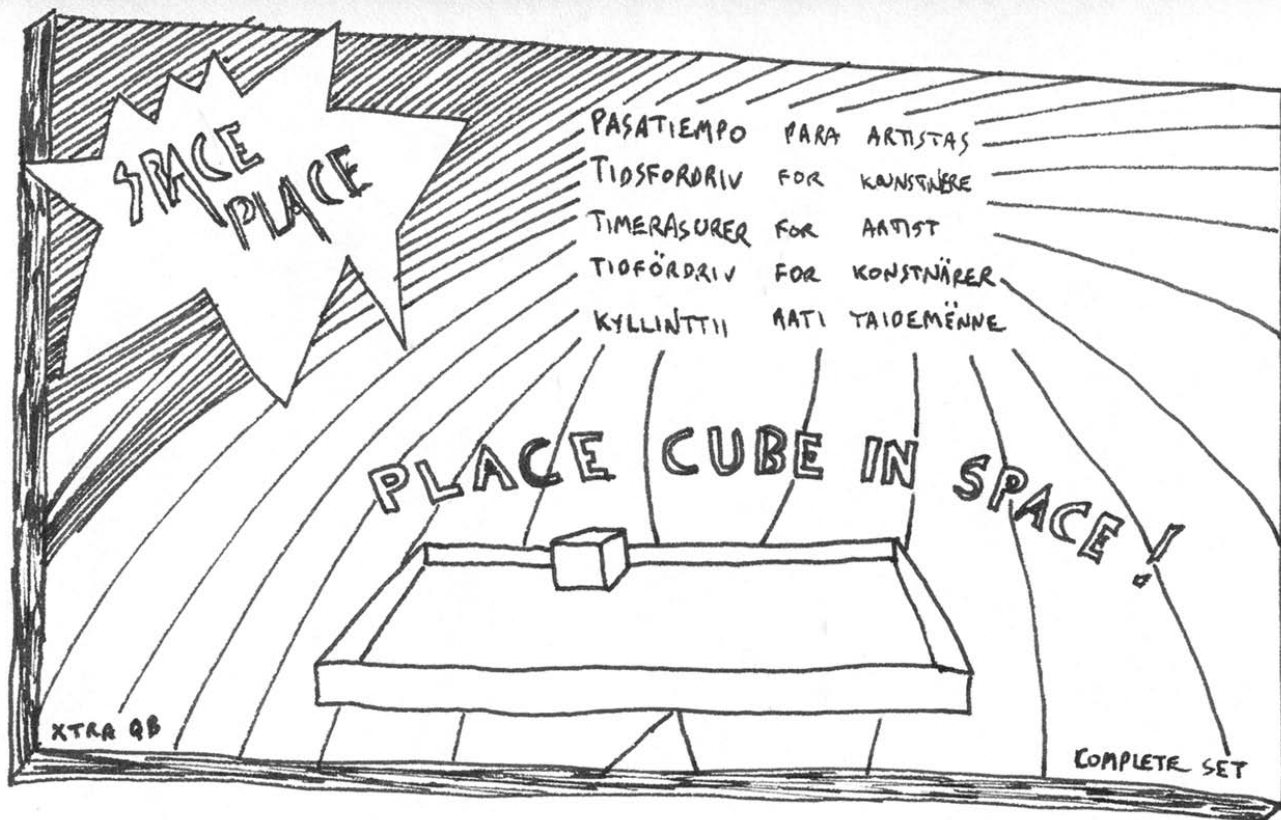 SPACE
PLACE
PASATIEMPO PARA ARTISTAS
TIDSFORDRIV FOR KUNSTNERE
TIMERASURER FOR ARTIST
TIDFÖRDRIV FOR KONSTNÄRER
KYLLINTTII AATI TAIDEMËNNE
PLACE CUBE IN SPACE!
XTRA QB
COMPLETE SET